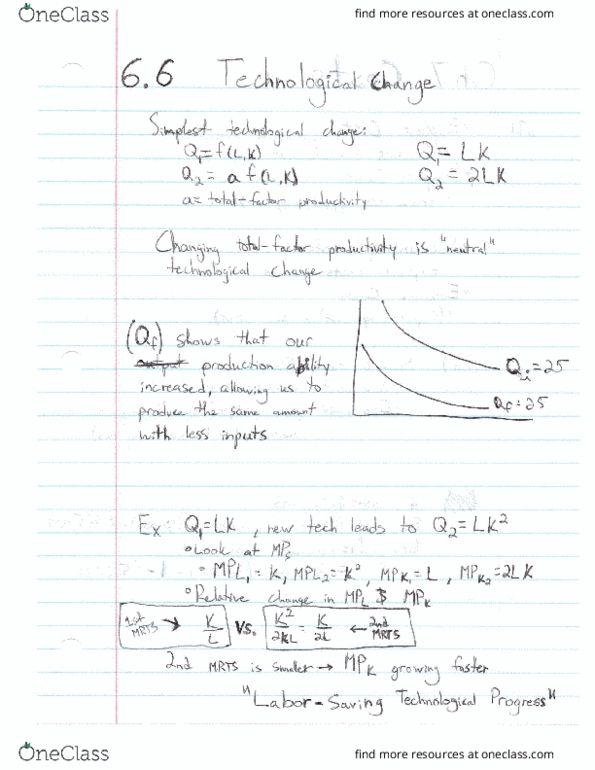 OneClass find more resources at oneclass.com
6.6 Technological Change
Simplest technological change:
Q₁=f(L,K) Q₁= LK
Q₂= a f(L,K) Q₂ = 2LK
a= total-factor productivity
Changing total-factor productivity is "neutral"
technological change
(Qf) shows that our
output production ability
increased, allowing us to
produce the same amount
with less inputs
Qi=25
Qf=25
Ex: Q₁=LK, new tech leads to Q₂=LK²
Look at MPs
MPL₁=K, MPL₂=K², MPK₁=L, MPK₂=2LK
Relative change in MPL & MPK
1st MRTS → K/L vs. K²/2KL = K/2L ← 2nd MRTS
2nd MRTS is smaller → MPK growing faster
"Labor-Saving Technological Progress"
OneClass find more resources at oneclass.com